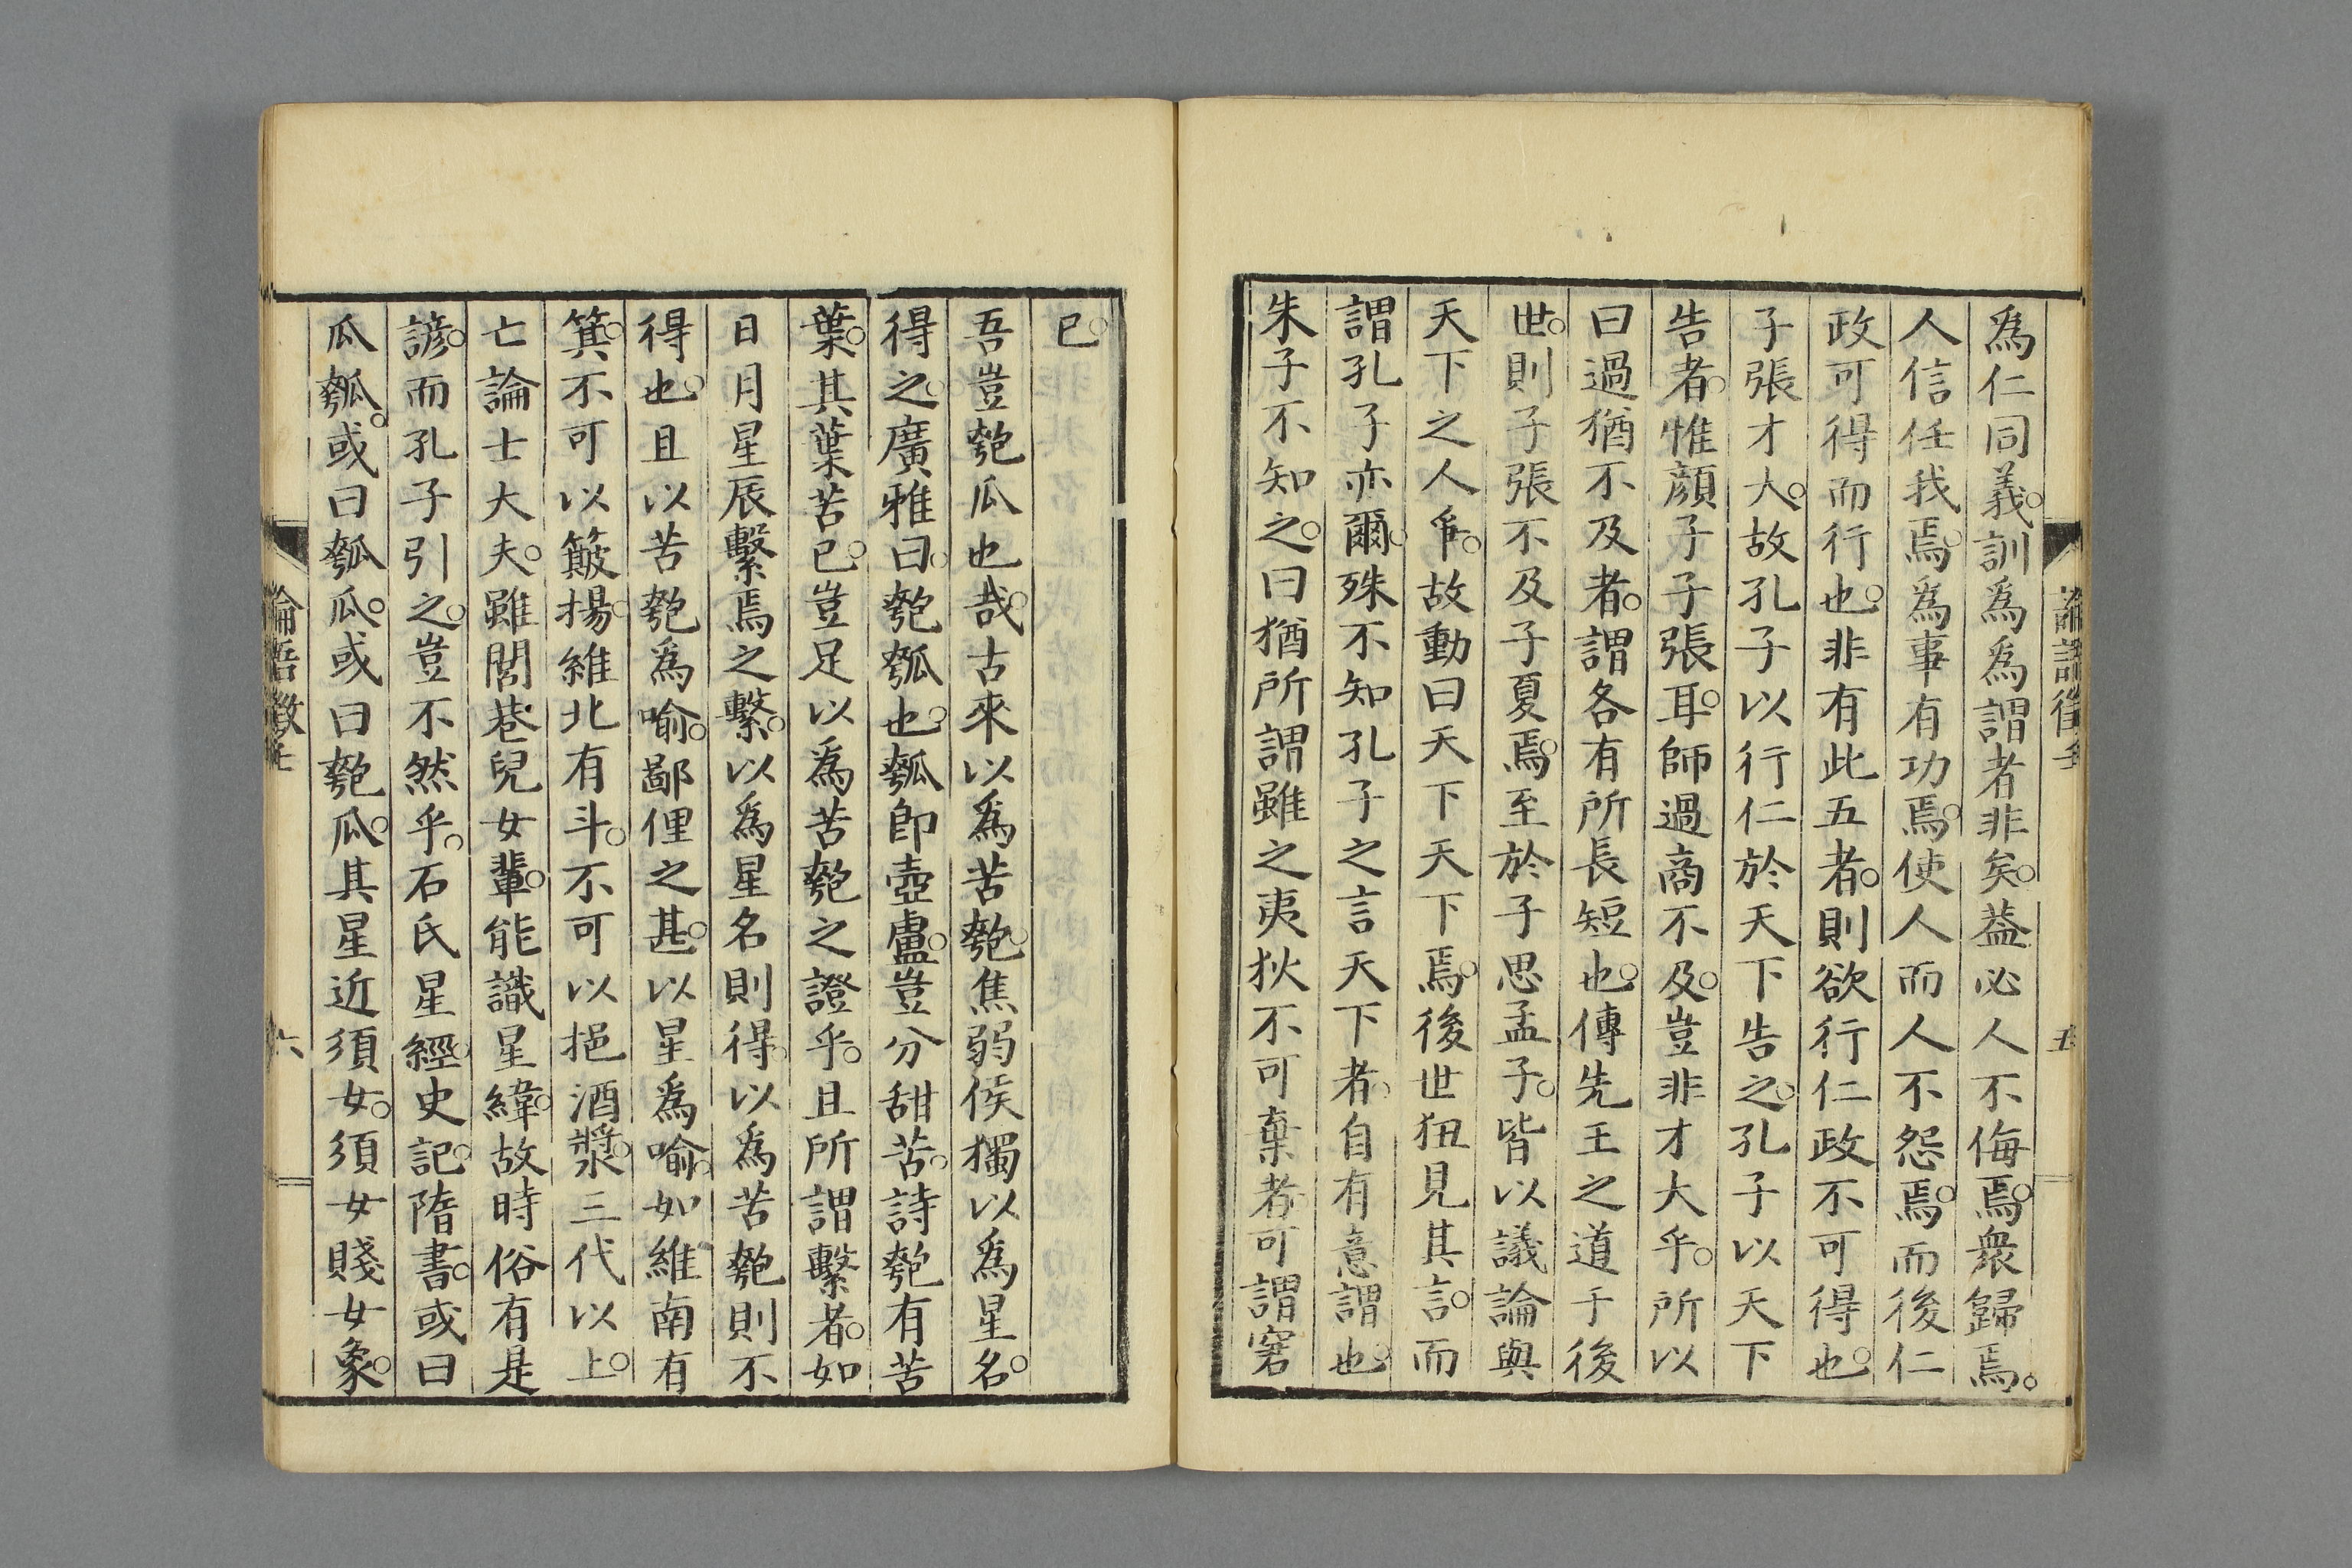 爲仁同義。訓爲爲謂者非矣。葢必人不侮焉。衆歸焉。
人信任我焉。爲事有功焉。使人而人不怨焉。而後仁
政可得而行也。非有此五者。則欲行仁政不可得也。
子張才大。故孔子以行仁於天下告之。孔子以天下
告者。惟顔子子張耳。師過商不及。豈非才大乎。所以
曰過猶不及者。謂各有所長短也。傳先王之道于後
世。則子張不及子夏焉。至於子思孟子。皆以議論與
天下之人爭。故動曰天下天下焉。後世狃見其言。而
謂孔子亦爾。殊不知孔子之言天下者。自有意謂也。
朱子不知之。曰猶所謂雖之夷狄不可棄者。可謂窘
已。
吾豈匏瓜也哉。古來以爲苦匏。焦弱侯獨以爲星名。
得之。廣雅曰。匏瓠也。瓠即壺盧。豈分甜苦。詩匏有苦
葉。其葉苦已。豈足以爲苦匏之證乎。且所謂繫者。如
日月星辰繫焉之繫。以爲星名則得。以爲苦匏則不
得也。且以苦匏爲喻。鄙俚之甚。以星爲喻。如維南有
箕。不可以簸揚。維北有斗。不可以挹酒漿。三代以上。
亡論士大夫。雖閭巷兒女輩。能識星緯。故時俗有是
諺。而孔子引之。豈不然乎。石氏星經。史記。隋書。或曰
瓜瓠。或曰瓠瓜。或曰匏瓜。其星近須女。須女賤女象。
論語徵壬
五
論語徵壬
六